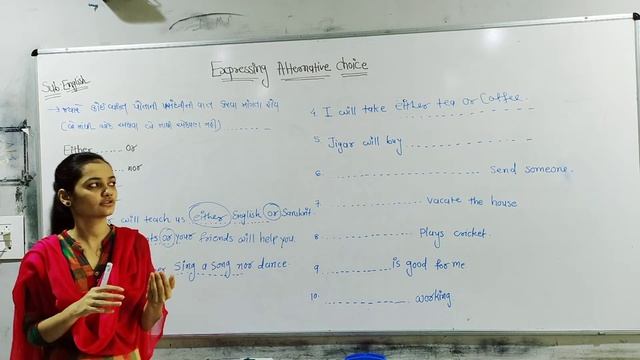 Expressing Alternative choice
Sub English
→ જ્યારે કોઈ વ્યક્તિ પોતાની પસંદગીની વાત કરવા માંગતા હોય
(બે માંથી એક અથવા બે માંથી એકપણ નહીં) ..........
Either ...... or
...... nor
will teach us either English or Sanskrit.
or your friends will help you.
sing a song nor dance.
4. I will take either tea or coffee.
5. Jigar will buy ..........
6. .......... Send someone.
7. .......... vacate the house
8. .......... Plays cricket.
9. .......... is good for me.
10. .......... working.